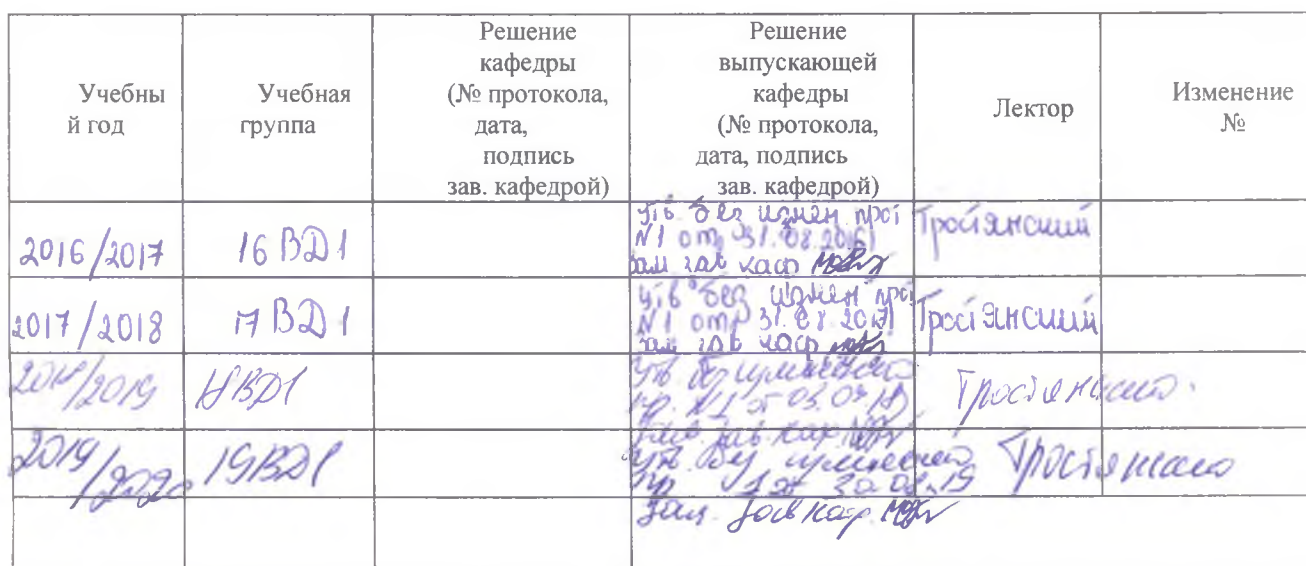 Учебны
й год
Учебная
группа
Решение
кафедры
(№ протокола,
дата,
подпись
зав. кафедрой)
Решение
выпускающей
кафедры
(№ протокола,
дата, подпись
зав. кафедрой)
Лектор
Изменение
№
2016/2017
16 ВД1
Утв без измен прот
N1 от 31.08.2016)
зам зав каф
Тростянский
2017/2018
17 ВД1
Утв без измен прот
N1 от 31.08.2017)
зам зав каф
Тростянский
2018/2019
18ВД1
Утв. без
пр. N1 от 03.09.18)
зам. зав каф
2019/2020
19ВД1
Утв. без
пр 1 от 30.08.19
Зам. зав каф.